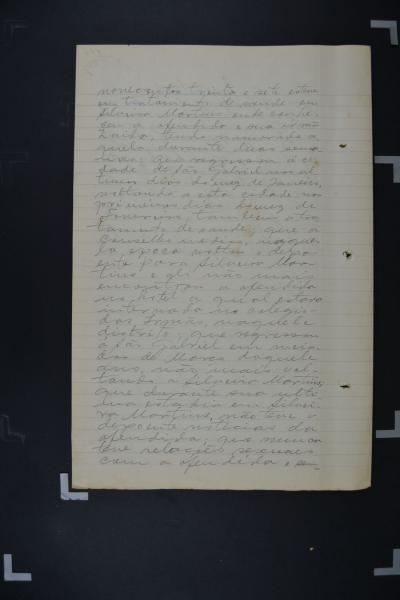 novecentos trinta e sete esteve
em tratamento de saude em
Silveira Martins onde conhe-
ceu a ofendida e sua irmã
Zaida, tendo namorado a
quela durante duas sema
nas; que regressou á ci-
dade de São Gabriel nos ul
timos dias do mez de Janeiro,
voltando a esta cidade nos
primeiros dias do mez de
Fevereiro, tambem a tra
tamento de saude; que a
conselho medico, naquel
la epoca voltou o depo-
ente para Silveira Mar-
tins e ali não mais
encontrou a ofendida
no hotel a qual estava
internada no colegio
das Irmãs, naquele
distrito; que regressou
a São Gabriel em meia-
dos de Março daquele
ano, não mais vol-
tando a Silveira Martins;
que durante sua ulti
ma estadia em Silvei-
ra Martins, não teve o
depoente noticias da
ofendida; que nunca
teve relações sexuaes
com a ofendida e